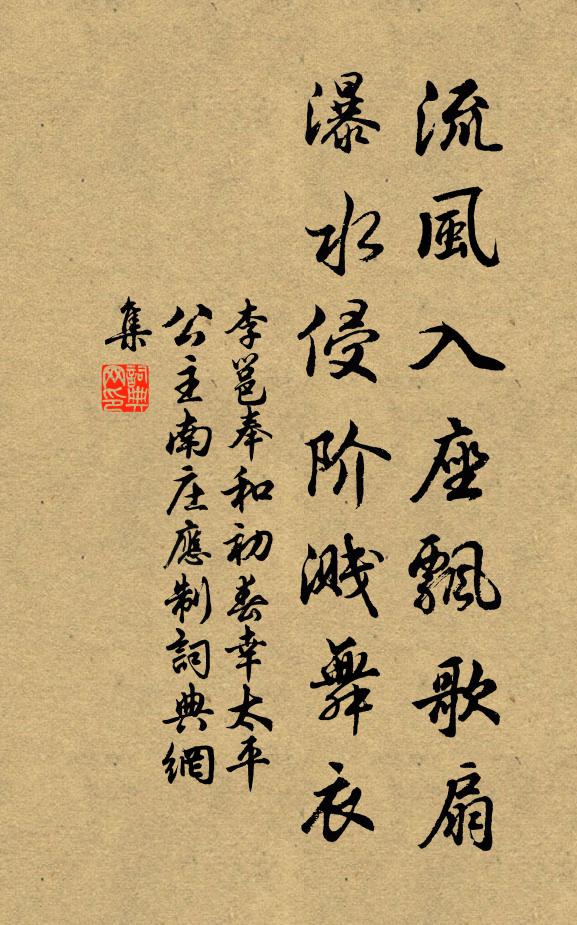 流風入座飄歌扇
瀑水侵阶溅舞衣
李邕奉和初春幸太平
公主南庄應制詞典網
集
詞典
网印